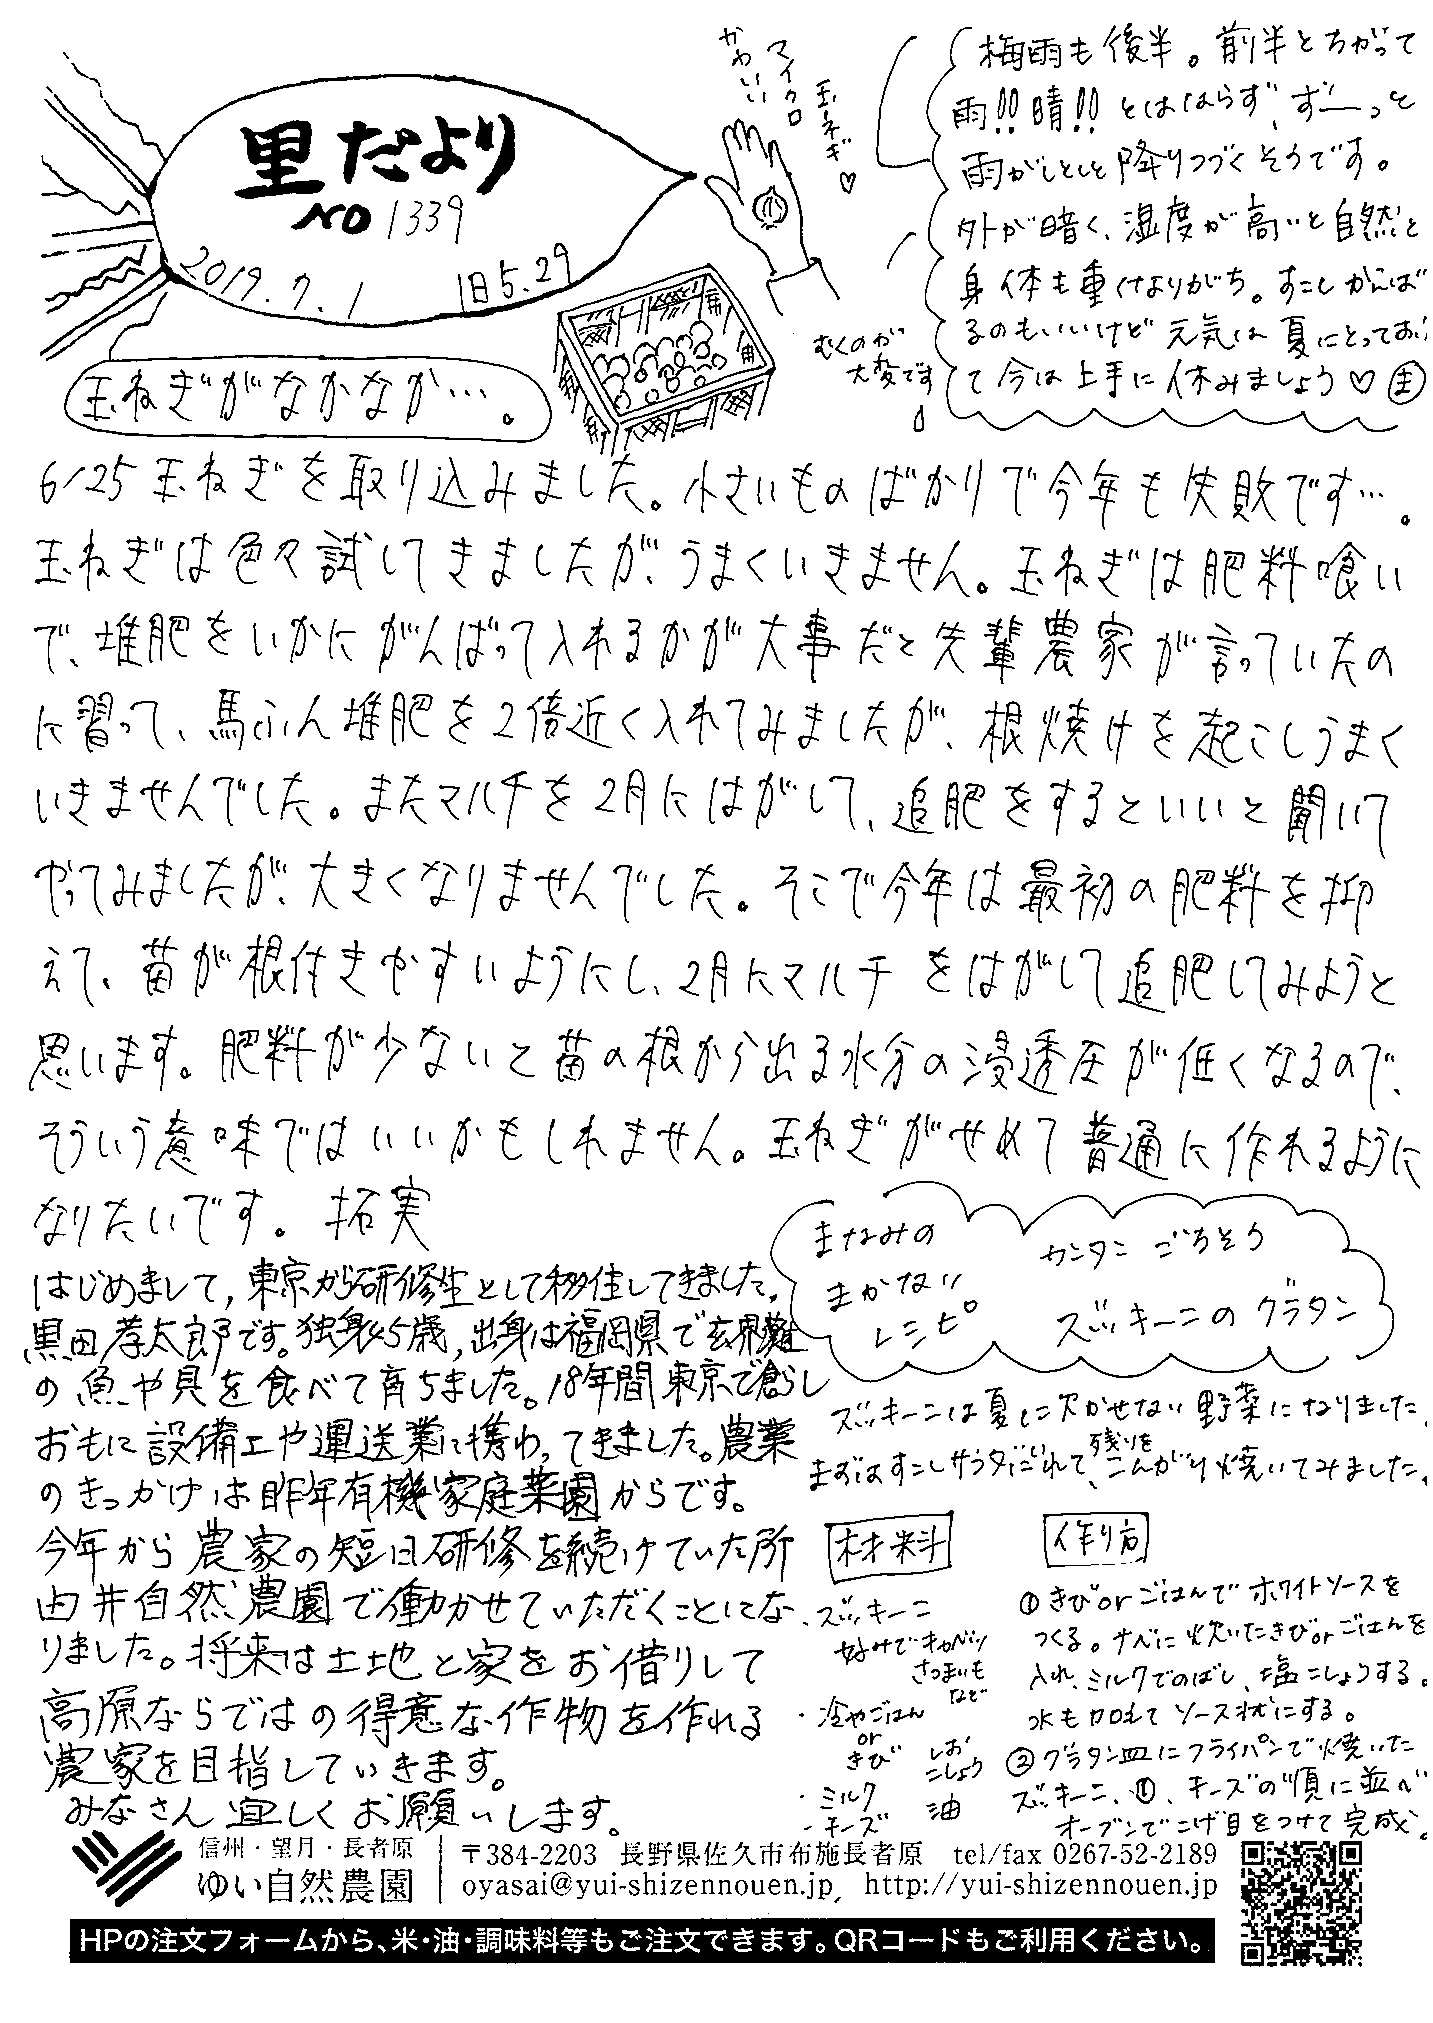 里だより
NO 1339
2019.7.1
旧5.29
かわいい
マイクロ
玉ネギ♡
むくのが
大変です
梅雨も後半。前半とちがって
雨!!晴!!とはならず、ずーっと
雨がしとしと降りつづくそうです。
外が暗く、湿度が高いと自然と
身体も重くなりがち。すこしがんば
るのもいいけど元気は夏にとってお
て今は上手に休みましょう♡
玉ねぎがなかなか…。
6/25玉ねぎを取り込みました。小さいものばかりで今年も失敗です…。
玉ねぎは色々試してきましたが、うまくいきません。玉ねぎは肥料喰い
で、堆肥をいかにがんばって入れるかが大事だと先輩農家が言っていたの
に習って、馬ふん堆肥を2倍近く入れてみましたが、根焼けを起こしうまく
いきませんでした。またマルチを2月にはがして、追肥をするといいと聞いて
やってみましたが、大きくなりませんでした。そこで今年は最初の肥料を抑
えて、苗が根付きやすいようにし、2月にマルチをはがして追肥してみようと
思います。肥料が少ないと苗の根から出る水分の浸透圧が低くなるので、
そういう意味ではいいかもしれません。玉ねぎがせめて普通に作れるように
なりたいです。 拓実
はじめまして,東京から研修生として移住してきました。
黒田孝太郎です。独身45歳,出身は福岡県で玄界灘
の魚や貝を食べて育ちました。18年間東京で暮らし
おもに設備工や運送業に携わってきました。農業
のきっかけは昨年有機家庭菜園からです。
今年から農家の短日研修を続けていた所
由井自然農園で働かせていただくことにな
りました。将来は土地と家をお借りして
高原ならではの得意な作物を作れる
農家を目指していきます。
みなさん宜しくお願いします。
まなみの
まかない
レシピ
カンタンごちそう
ズッキーニのグラタン
ズッキーニは夏に欠かせない野菜になりました。
まずはすこしサラダにいれて、残りをこんがり焼いてみました。
材料
・ズッキーニ
好みでキャベツ
さつまいも
など
・冷やごはん
or
きび
・ミルク
・チーズ
しお
こしょう
油
作り方
①きびorごはんでホワイトソースを
つくる。ナベに炊いたきびorごはんを
入れ、ミルクでのばし、塩こしょうする。
水も加えてソース状にする。
②グラタン皿にフライパンで焼いた
ズッキーニ、①、チーズの順に並べ
オーブンでこげ目をつけて完成。
信州・望月・長者原
ゆい自然農園
〒384-2203 長野県佐久市布施長者原 tel/fax 0267-52-2189
oyasai@yui-shizennouen.jp, http://yui-shizennouen.jp
HPの注文フォームから、米・油・調味料等もご注文できます。QRコードもご利用ください。